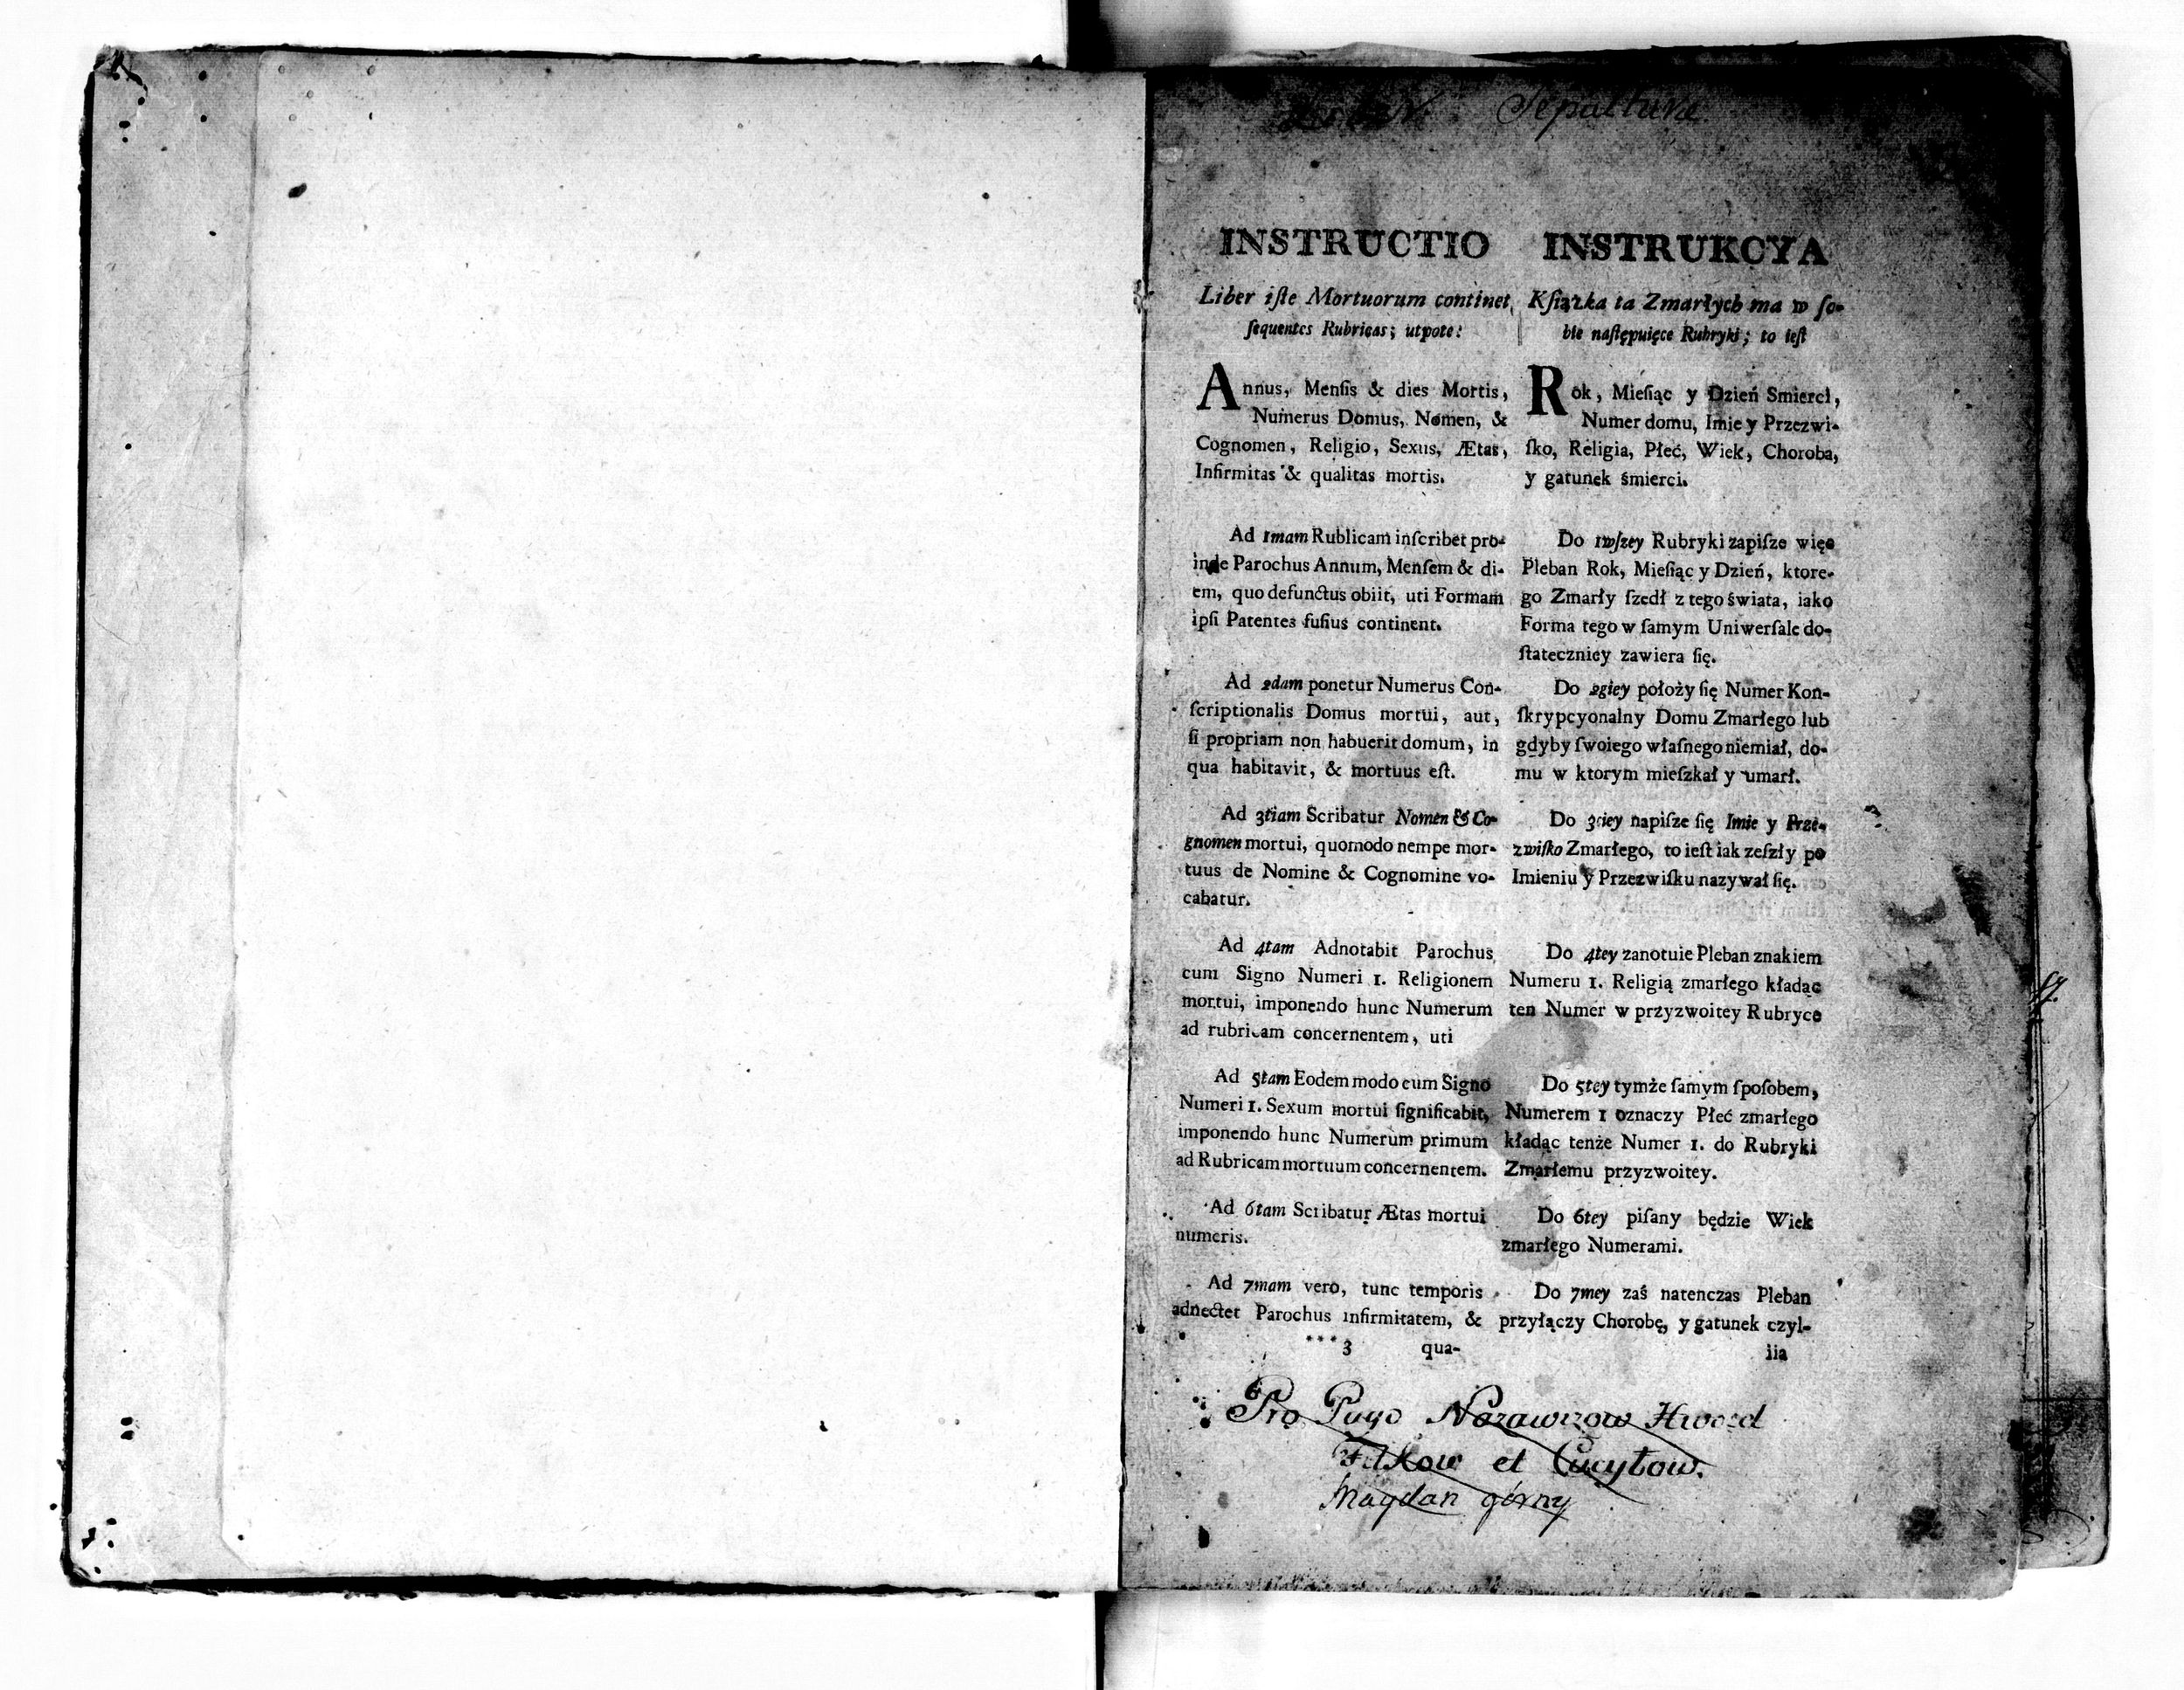 Sepulturae
INSTRUCTIO
Liber iſte Mortuorum continet
ſequentes Rubricas; utpote:
Annus, Menſis & dies Mortis,
Numerus Domus, Nomen, &
Cognomen, Religio, Sexus, Ætas,
Infirmitas & qualitas mortis.
Ad 1mam Rublicam inſcribet pro-
inde Parochus Annum, Menſem & di-
em, quo defunctus obiit, uti Formam
ipſi Patentes fuſius continent.
Ad 2dam ponetur Numerus Con-
ſcriptionalis Domus mortui, aut,
ſi propriam non habuerit domum, in
qua habitavit, & mortuus eſt.
Ad 3tiam Scribatur Nomen & Co-
gnomen mortui, quomodo nempe mor-
tuus de Nomine & Cognomine vo-
cabatur.
Ad 4tam Adnotabit Parochus
cum Signo Numeri 1. Religionem
mortui, imponendo hunc Numerum
ad rubricam concernentem, uti
Ad 5tam Eodem modo cum Signo
Numeri 1. Sexum mortui ſignificabit,
imponendo hunc Numerum primum
ad Rubricam mortuum concernentem.
Ad 6tam Scribatur Ætas mortui
numeris.
Ad 7mam vero, tunc temporis
adnectet Parochus infirmitatem, &
***3 qua-
INSTRUKCYA
Kſiązka ta Zmarłych ma w ſo-
bie naſtępuięce Rubryki; to ieſt
Rok, Mieſiąc y Dzień Smierci,
Numer domu, Imie y Przezwi-
ſko, Religia, Płeć, Wiek, Choroba,
y gatunek śmierci.
Do 1wſzey Rubryki zapiſze więc
Pleban Rok, Mieſiąc y Dzień, ktore-
go Zmarły ſzedł z tego świata, iako
Forma tego w ſamym Uniwerſale do-
ſtateczniey zawiera ſię.
Do 2giey położy ſię Numer Kon-
ſkrypcyonalny Domu Zmarłego lub
gdyby ſwoiego właſnego niemiał, do-
mu w ktorym mieſzkał y umarł.
Do 3ciey napiſze ſię Imie y Prze-
zwiſko Zmarłego, to ieſt iak zeſzły po
Imieniu y Przezwiſku nazywał ſię.
Do 4tey zanotuie Pleban znakiem
Numeru 1. Religią zmarłego kładąc
ten Numer w przyzwoitey Rubryce
Do 5tey tymże ſamym ſpoſobem,
Numerem 1 oznaczy Płeć zmarłego
kładąc tenże Numer 1. do Rubryki
Zmarłemu przyzwoitey.
Do 6tey piſany będzie Wiek
zmarłego Numerami.
Do 7mey zaś natenczas Pleban
przyłączy Chorobę, y gatunek czyl-
iia
Pro Pago Nazawizow Hwozd
Fitkow et Cucyłow.
Magdan górny